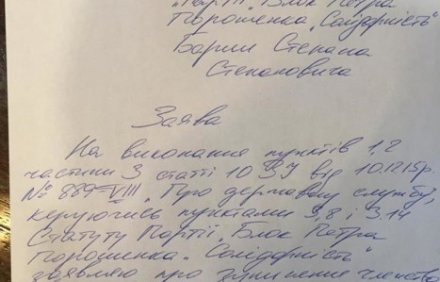 Партії „Блок Петра
Порошенка „Солідарність"
Барни Степана
Степановича
Заява
На виконання пунктів 1, 2
частини 3 статті 10 ЗУ від 10.12.15р.
№ 889-VIII „Про державну службу",
керуючись пунктами 3,8 і 3.14
Статуту Партії „Блок Петра
Порошенка „Солідарність"
заявляю про зупинення членства